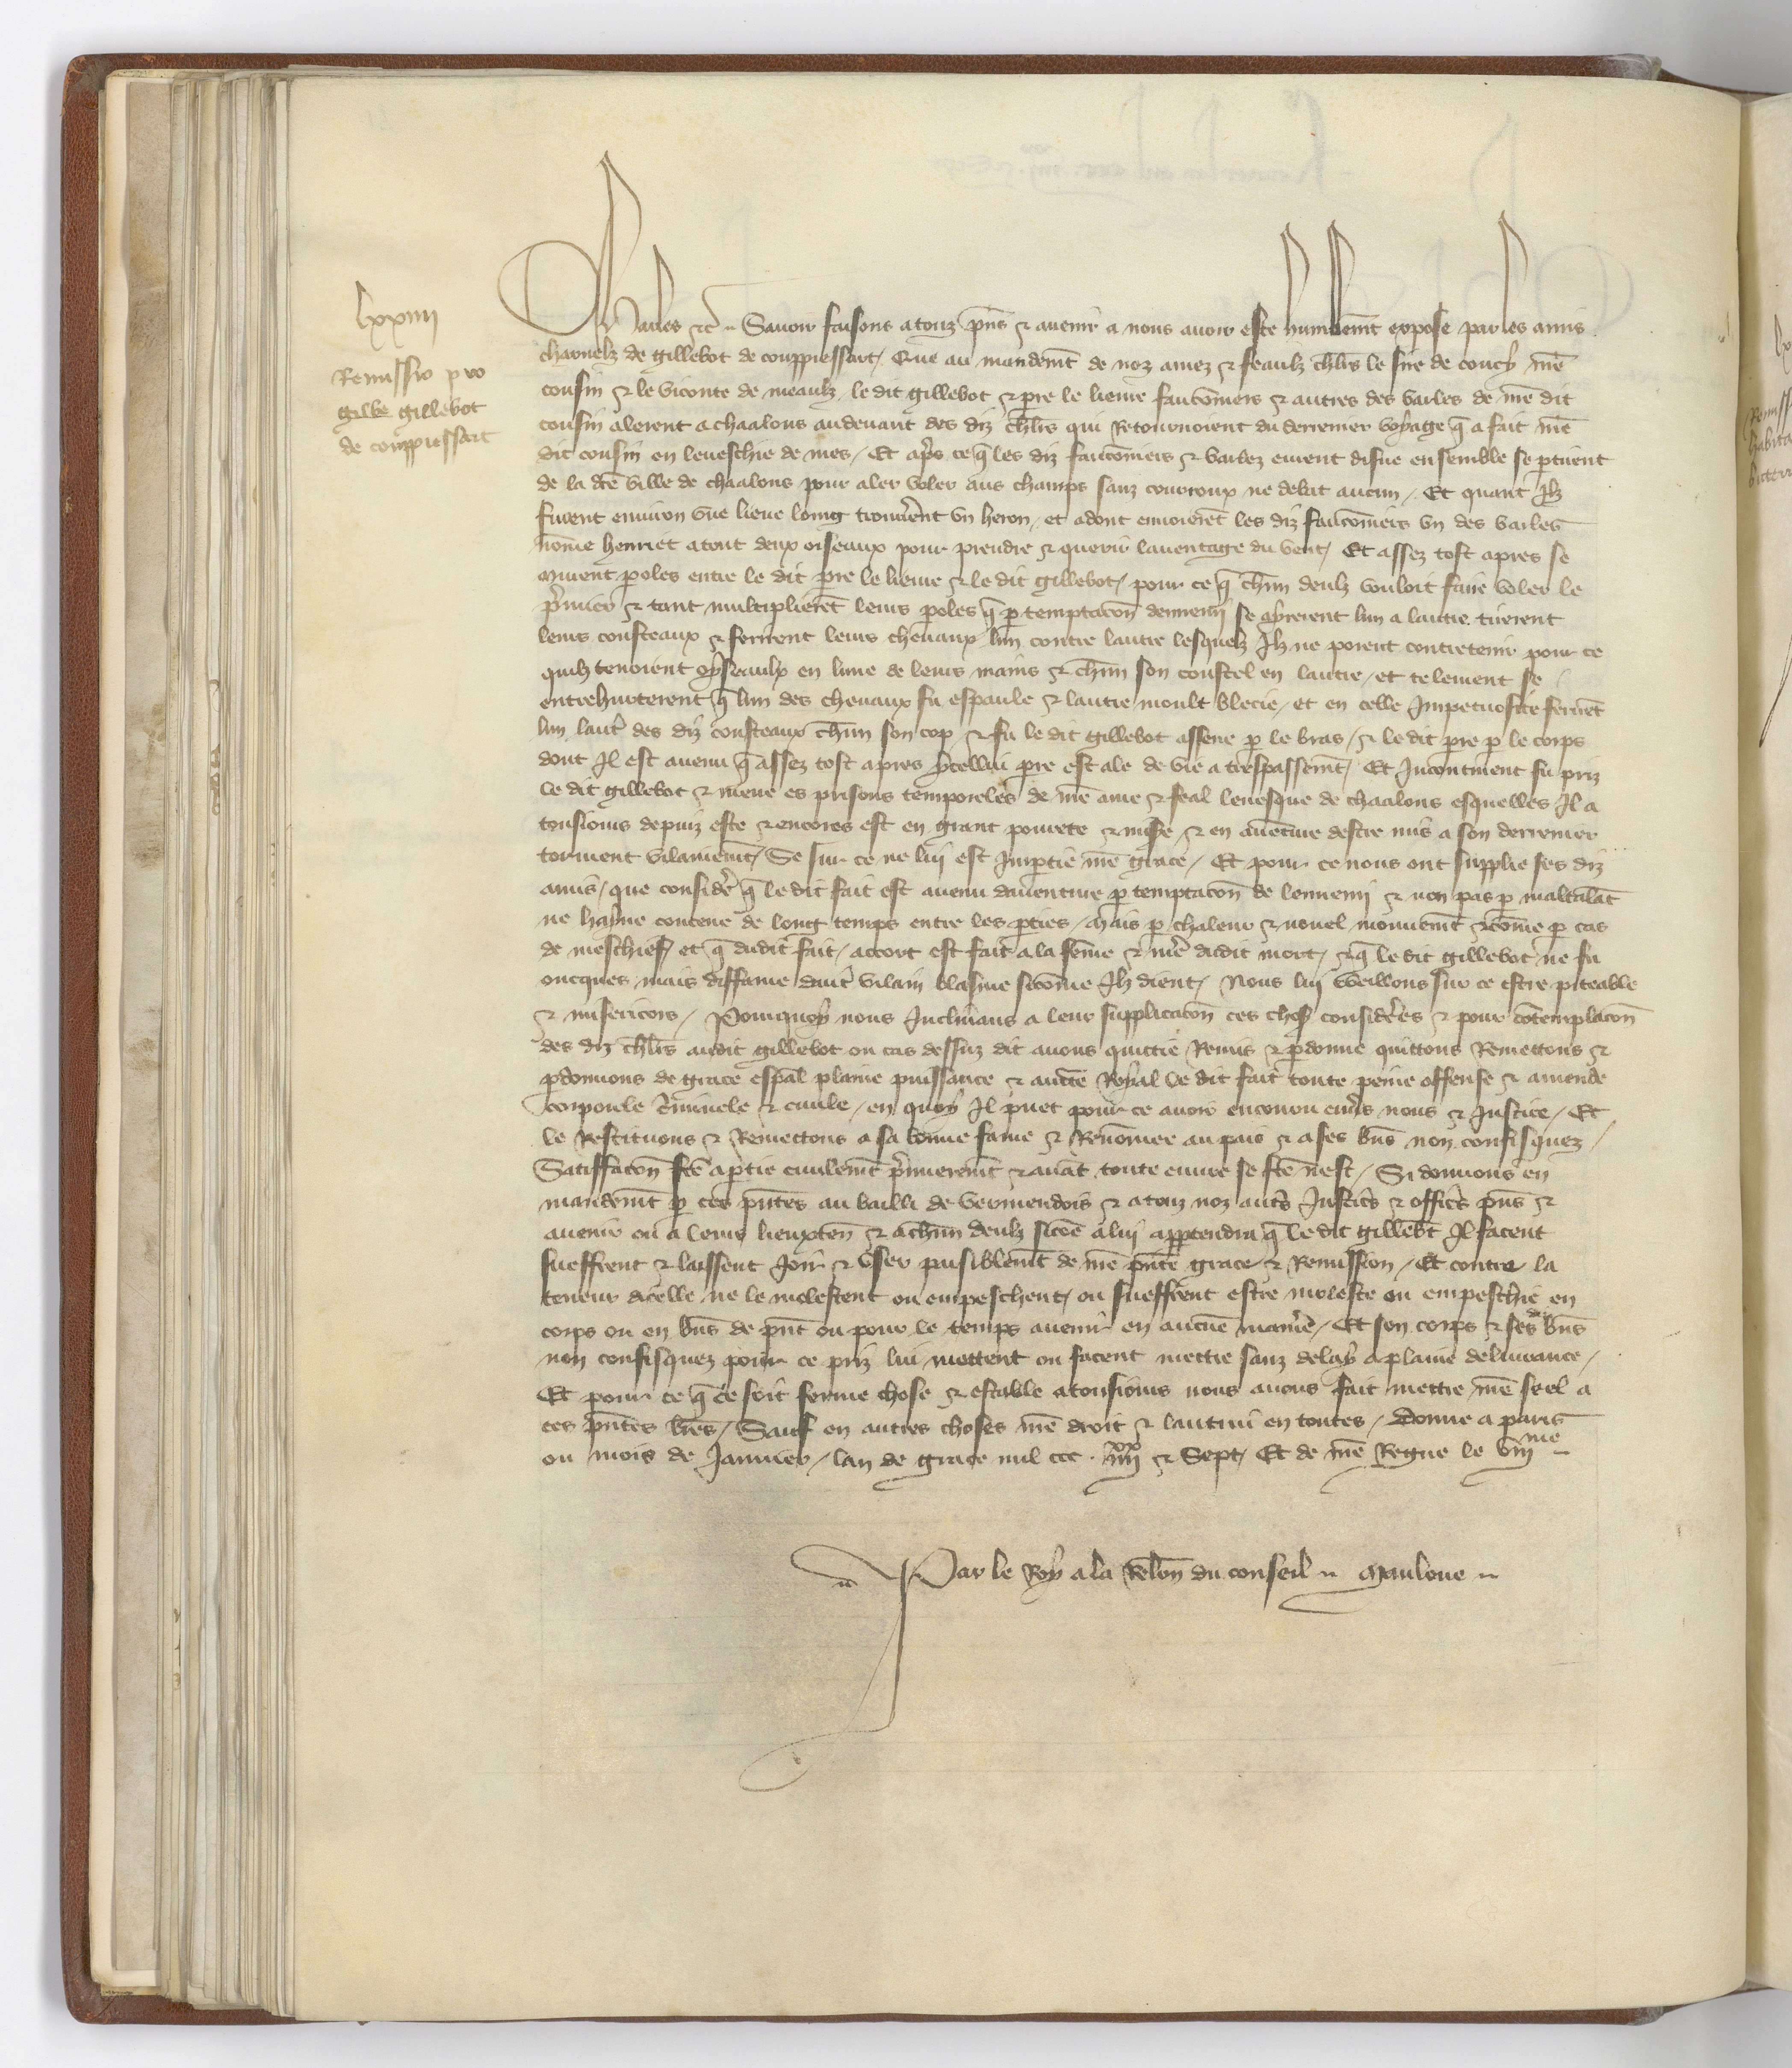 lxxiiii
Remissio pro
gilbe gillebot
de couppessart
Charles etc. Savoir faisons a touz p̃ns & avenir a nous avoir este humblem̃t expose par les amis
charnelz de gillebot de couppessart / Que au mandem̃t de noz amez & feaulz ch̃lrs le sire de coucy nr̃e
cousin & le viconte de meaulz / le dit gillebot & pr̃e le lieure fauconniers & autres des varles de nr̃e dit
cousin alerent a chaalons audevant des diz ch̃lrs qui retournoient du derrenier voyage q̃ a fait nr̃e
dit cousin en leveschie de mes / Et ap̃s ce q̃ les diz fauconniers & varlez eurent disne ensemble se ptirent
de la dc̃e ville de chaalons pour aler voler aus champs sanz courroux ne debat aucun / Et quant Ilz
furent environ une lieue loing trouverent un heron / et adont envoierẽt les diz fauconniers un des varles
nom̃e henriet atout deux oiseaux pour prendre & querir laventage du vent / Et assez tost apres se
murent poles entre le dit pr̃e le lieure & le dit gillebot / pour ce q̃ ch̃un deulz vouloit faire voler le
p̃mier & tant multiplierẽt leurs poles q̃ p temptacõn dennemi se aprerent lun a lautre tirerent
leurs cousteaux & ferirent leurs chevaux lun contre lautre lesquelz Ilz ne porent contretenir pour ce
quilz tenoient oyseaulx en lune de leurs mains & ch̃un son coustel en lautre / et telement se
entrehurterent q̃ lun des chevaux fu espaule & lautre moult blecie / et en celle Impetuosite ferirẽt
lun laut̃ des diz cousteaux ch̃un son cop / & fu le dit gillebot assene p le bras / & le dit pr̃e p le corps
dont Il est avenu q̃ assez tost apres ycellui pr̃e est ale de vie a trespassem̃t / Et Incontinent fu priz
le dit gillebot & mene es prisons temporeles de nr̃e ame & feal levesque de chaalons esquelles Il a
tousiours depuiz este & encores est en grant povrete & mis̃e / & en aventure destre mis a son derrenier
torment vilainem̃t / Se sur ce ne lui est Imptie nr̃e grace / Et pour ce nous ont supplie ses diz
amis / que consider̃ q̃ le dit fait est avenu daventure p temptacõn de lennemi & non pas p maltalãt
ne hayne contenue de long temps entre les pties / mais p chaleur & novel mouvem̃t & com̃e p cas
de meschief / et q̃ dudit fait / accort est fait a la fem̃e & mer̃e dudit mort / & q̃ le dit gillebot ne fu
oncques mais diffame daut̃ vilain blasme sicom̃e Ilz dient / Nous lui veillons sur ce estre piteable
& misericors / Pourquoy nous Inclinans a leur supplicacõn ces choses consider̃es & pour cõtemplacõn
des diz ch̃lrs audit gillebot ou cas dessuz dit avons quittie Remis & pdonne quittons Remettons &
pdonnons de grace esp̃al plaine puissance & auctẽ Royal le dit fait toute peine offense & amende
corporele c̃minele & civile / en quoy Il puet pour ce avoir encouru envers nous & Justice / Et
le Restituons & Remettons a sa bonne fame & Renom̃ee au pais & a ses biẽs non confisquez /
Satisfacõn fc̃e a ptie civilem̃t p̃mierem̃t & avãt toute euvre se fc̃e nest / Si donnons en
mandem̃t p ces p̃ntes au bailli de vermendois & a touz noz aut̃s Justic̃s & offic̃s p̃ns &
avenir ou a leurs lieuxten̄ & a ch̃un deulz sicõe a lui apptendra q̃ le dit gillebt̃ Il facent
sueffrent & laissent Joir & user pasiblem̃t de nr̃e p̃nte grace & Remission / Et contre la
teneur dicelle ne le molestent ou empeschent / ou sueffrent estre moleste ou empeschie en
corps ou en biẽs de p̃nt ou pour le temps avenir en aucũe manier̃e / Et son corps & ses diz biẽs
non confisquez pour ce priz lui mettent ou facent mettre sanz delay a plaine delivrance /
Et pour ce q̃ ce soit ferme chose & estable a tousiours nous avons fait mettre nr̃e scel a
ces p̃ntes lr̃es / Sauf en autres choses nr̃e droit & lautrui en toutes / Donne a paris
ou mois de Janvier / lan de grace mil ccc . iiii xx & Sept / Et de nr̃e Regne le viii me
Par le Roy a la Rel̃on du conseil .. Mauloue ..